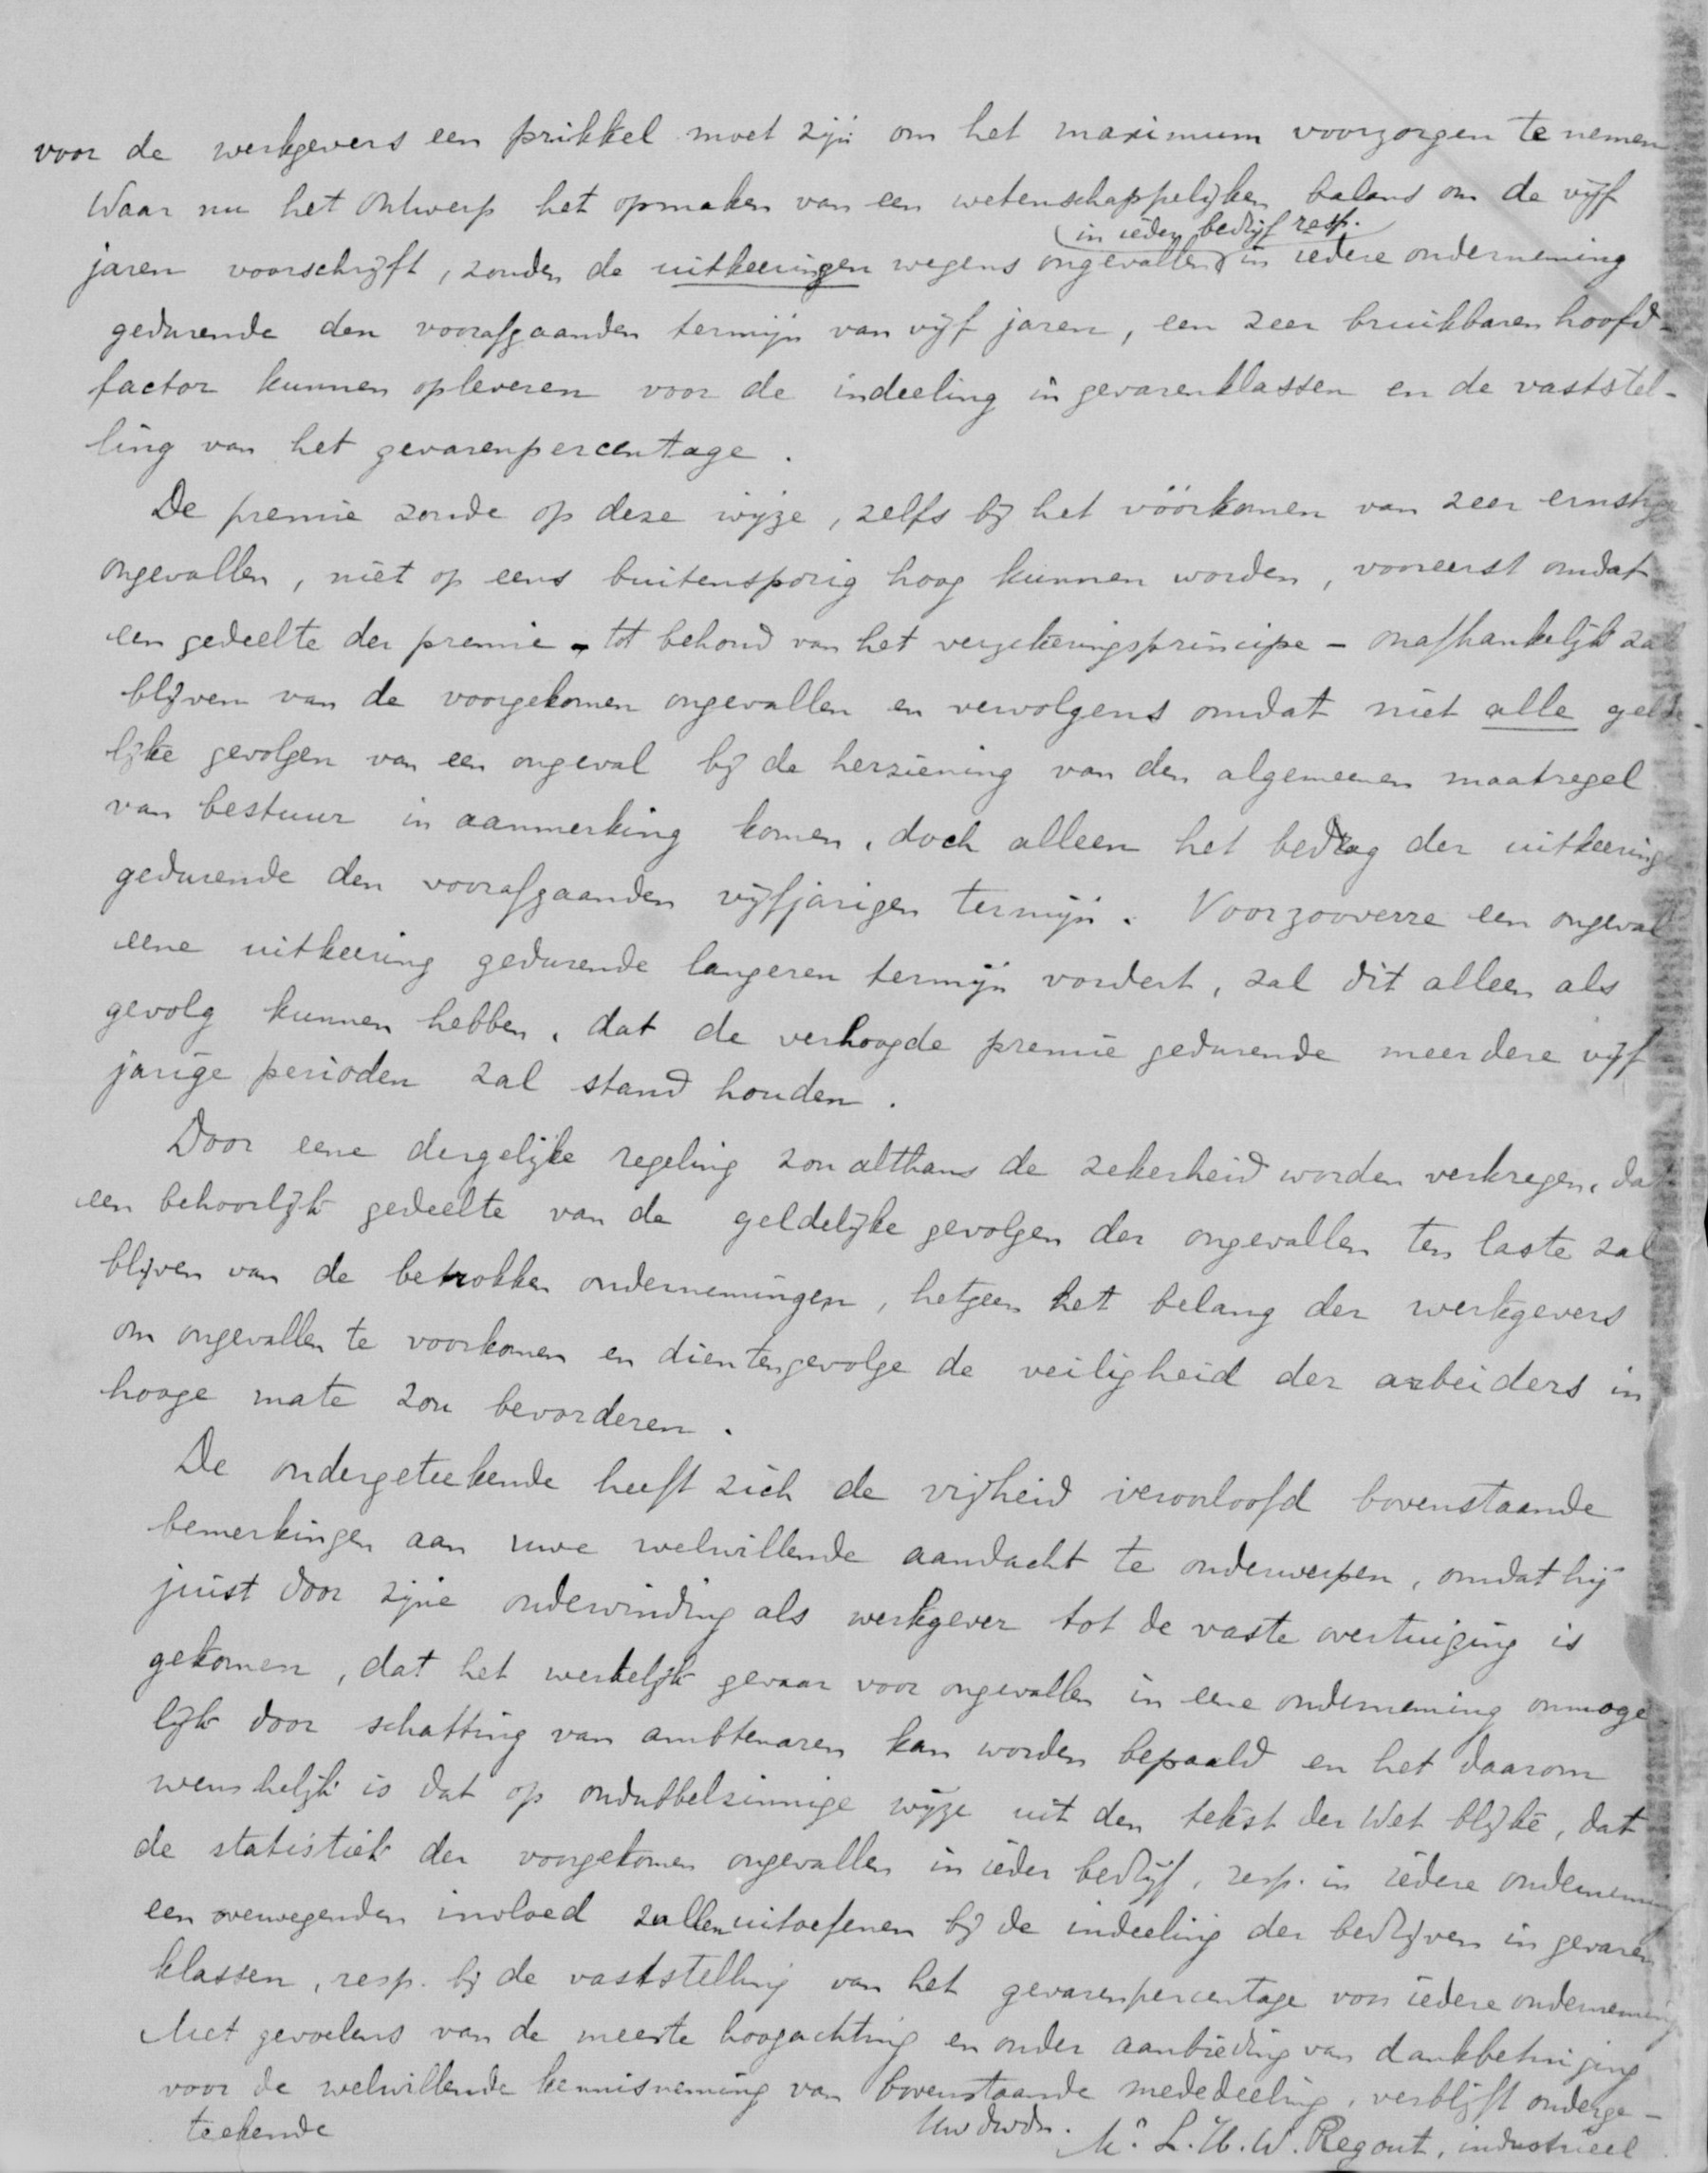 voor de werkgevers een prikkel moet zijn om het maximum voorzorgen te nemen
Waar nu het Ontwerp het opmaken van een wetenschappelijken balans om de vijf
in ieder bedrijf resp.
jaren voorschrijft, zouden de uitkeeringen wegens ongevallen in iedere onderneming
gedurende den voorafgaanden termijn van vijf jaren, een zeer bruikbaren hoofd-
factor kunnen opleveren voor de indeeling in gevarenklassen en de vaststel-
ling van het gevarenpercentage.
De premie zoude op deze wijze, zelfs bij het vóórkomen van zeer ernstige
ongevallen, niet op eens buitensporig hoog kunnen worden, vooreerst omdat
een gedeelte der premie - tot behoud van het verzekeringsprincipe - onafhankelijk zal
blijven van de voorgekomen ongevallen en vervolgens omdat niet alle gelde-
lijke gevolgen van een ongeval bij de herziening van den algemeenen maatregel
van bestuur in aanmerking komen, doch alleen het bedrag der uitkeeringen
gedurende den voorafgaanden vijfjarigen termijn. Voorzooverre een ongeval
eene uitkeering gedurende langeren termijn vordert, zal dit alleen als
gevolg kunnen hebben, dat de verhoogde premie gedurende meerdere vijf
jarige perioden zal stand houden.
Door eene dergelijke regeling zou althans de zekerheid worden verkregen, dat
een behoorlijk gedeelte van de geldelijke gevolgen der ongevallen ten laste zal
blijven van de betrokken ondernemingen, hetgeen het belang der werkgevers
om ongevallen te voorkomen en dientengevolge de veiligheid der arbeiders in
hooge mate zou bevorderen.
De ondergeteekende heeft zich de vrijheid veroorloofd bovenstaande
bemerkingen aan uwe welwillende aandacht te onderwerpen, omdat hij
juist door zijne ondervinding als werkgever tot de vaste overtuiging is
gekomen, dat het werkelijk gevaar voor ongevallen in eene onderneming onmoge-
lijk door schatting van ambtenaren kan worden bepaald en het daarom
wenschelijk is dat op ondubbelzinnige wijze uit den tekst der Wet blijke, dat
de statistiek der voorgekomen ongevallen in ieder bedrijf, resp. in iedere onderneming
een overwegenden invloed zullen uitoefenen bij de indeeling der bedrijven in gevaren
klassen, resp. bij de vaststelling van het gevarenpercentage voor iedere onderneming
Met gevoelens van de meeste hoogachting en onder aanbieding van dankbetuiging
voor de welwillende kennisneming van bovenstaande mededeeling, verblijft onderge-
teekende
Uw dwdr.
Mr. L. H. W. Regout, industrieel